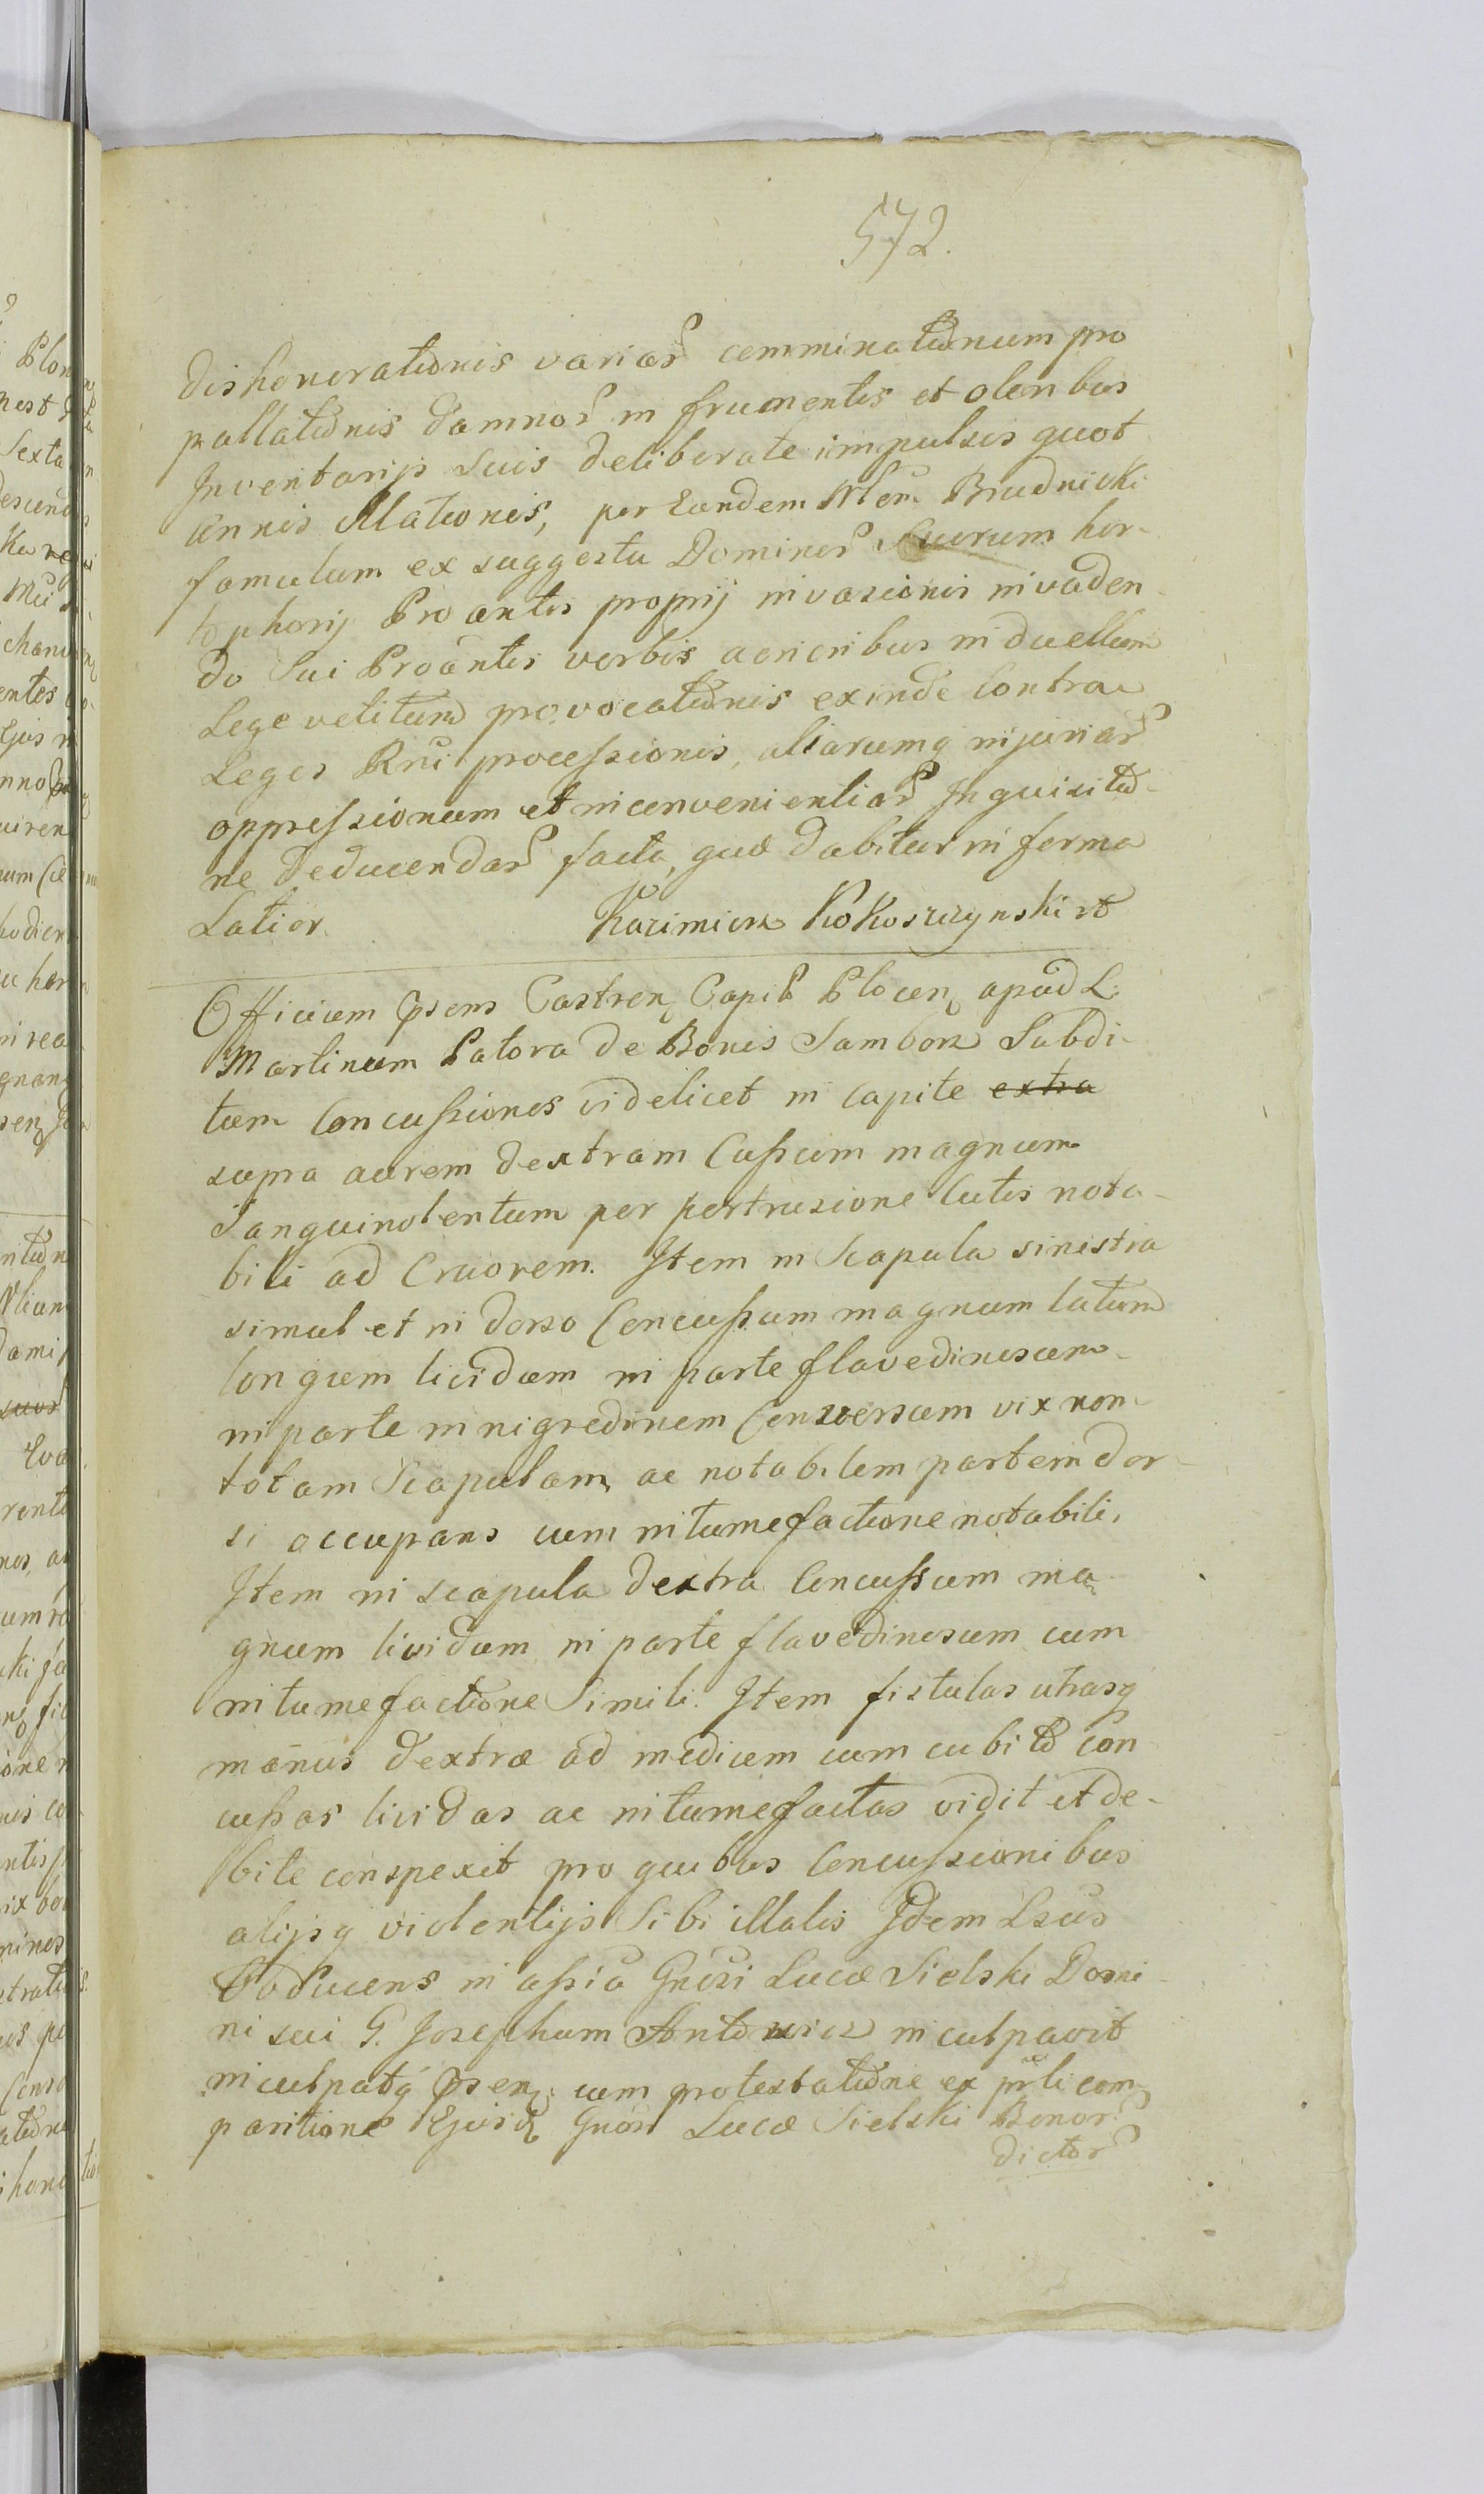 572.
dishonorationis variar comminationum pro
pallationis damnor in frumentis et oleribus
Inventarijs suis deliberate impulsis quot
annis illationis, per Eundem Nlem Brudnicki
famulum ex suggestu Dominor Suorum hor-
tophorij Proantis proprij invasionis invaden
do Sui Proantis verbis acrioribus in duellum
Lege vetitum provocationis exinde contra
Leges Rni processionis, aliarumq injuriar
oppressionum et inconvenientiar Inquisitio-
ne deducendar facta, quæ dabitur in forma
Latior. Kazimierz Kokoszczynski
Officium Psens Castren Capit Plocen apud L.
Martinum Patora de Bonis Samborz Subdi-
tum Concussiones videlicet in capite extra
supra aurem dextram Cussum magnum
Sanguinolentum per pertrusione Cutis nota-
bili ad Cruorem. Item in Scapula sinistra
simul et in dorso Concussum magnum latum
longum lividum in parte flavedinosum
in parte in nigredinem Conversum vix non
totam Scapulam ac notabilem partem dor-
si occupans cum intumefactione notabili,
Item in scapula dextra Concussum ma-
gnum lividum in parte flavedinosum cum
intumefactione Simili. Item fistulas utrasq
manus dextræ ad medium cum cubito con
cussas lividas ac intumefactas vidit et de-
bite conspexit pro quibus Concussionibus
alijsq violentijs Sibi illatis Idem Lsus
Obducens in assia Gnosi Lucæ Sielski Domi-
ni sui G. Josephum Antowicz inculpavit
inculpatq Psen cum protestatione ex psli com
paritione Ejusd Gnosi Lucæ Sielski Bonor
dictor